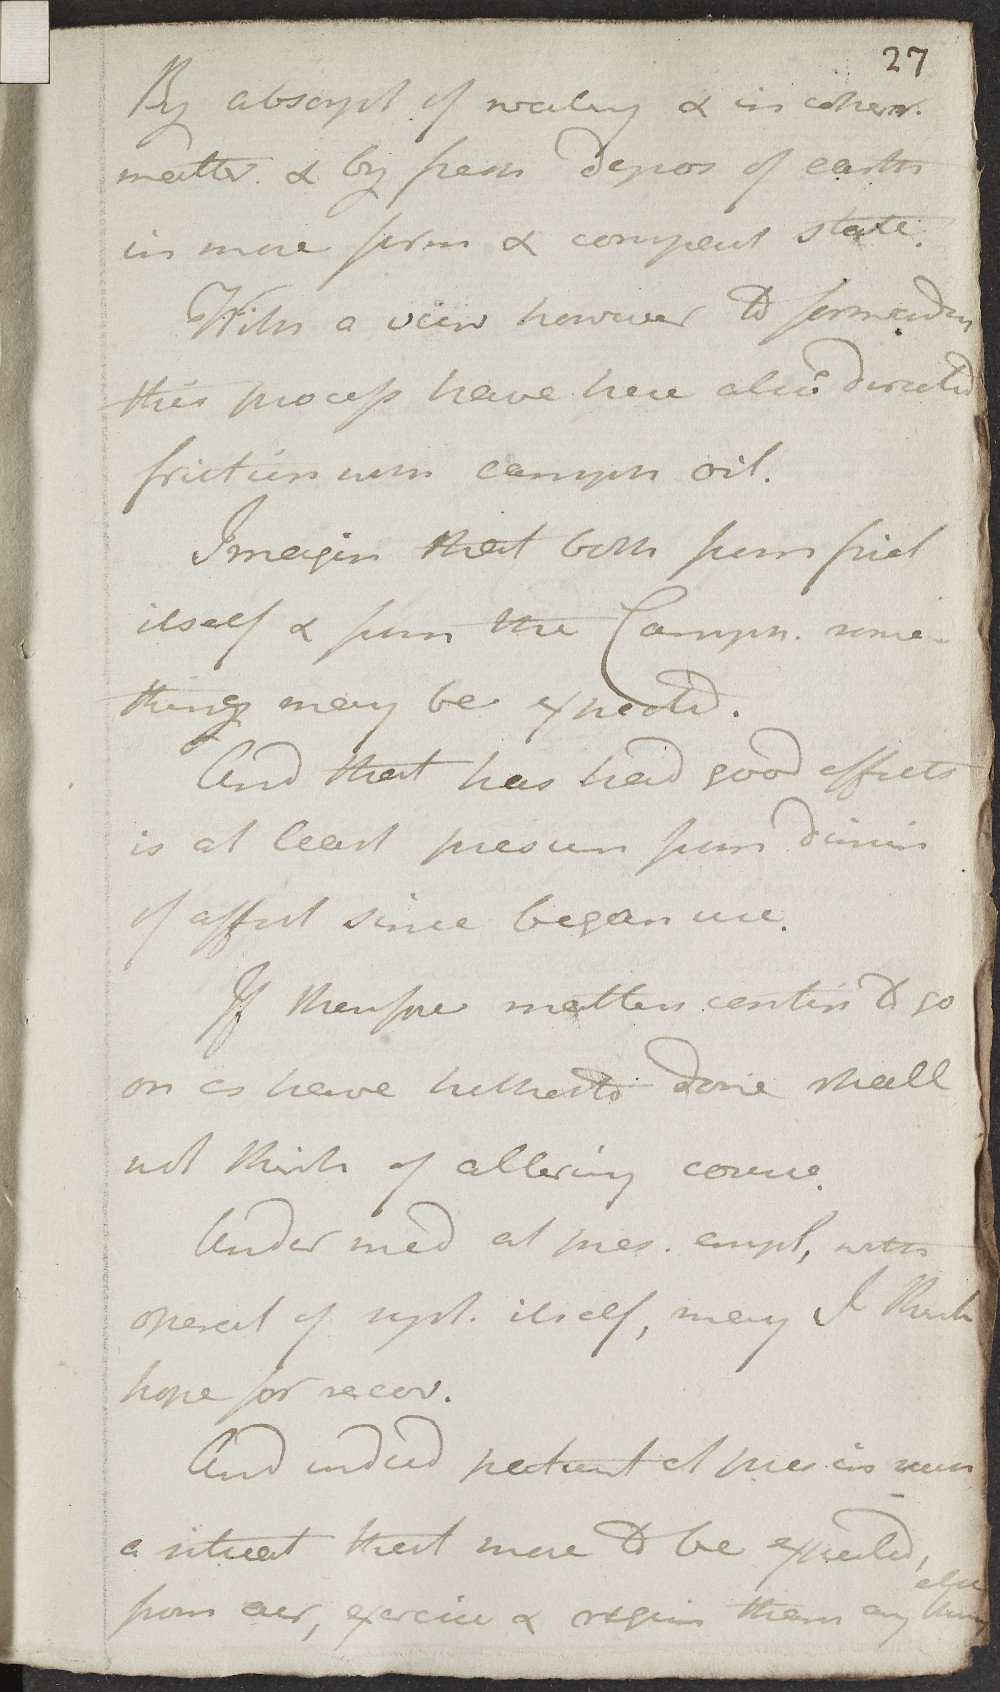 27
By absorpt of watery & incoher.
matter & by fresh depos of earth
in more firm & compact state.
With a view however to forwardin
this process have here also directed
friction with camph oil.
Imagin that both from frict
itself & from the Camph. some-
thing may be expected.
And that has had good effects
is at least presum from dimin
of affect since began use.
If therefore matters contin to go
on as have hitherto done shall
not think of altering course.
Under med at pres. empl, with
operat of syst. itself, may I think
hope for recov.
And indeed patient at pres in such
a situat that more to be expected,
from air, exercise & regim them any
else thing